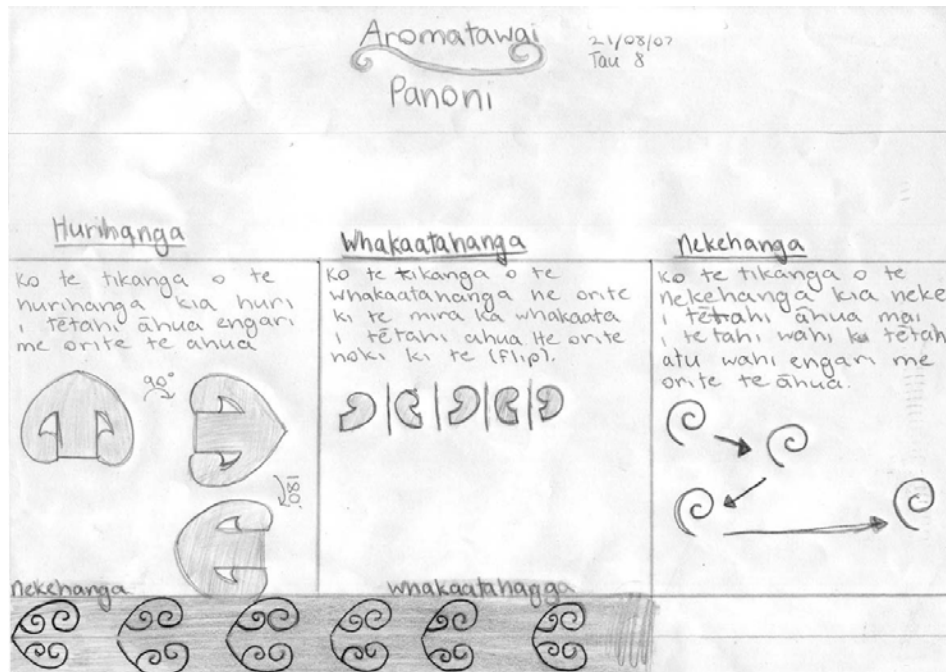 Aromatawai
21/08/07
Tau 8
Panoni
Hurihanga
Ko te tikanga o te
hurihanga kia huri
i tētahi āhua engari
me orite te ahua
90°
180°
Whakaatahanga
Ko te tikanga o te
whakaatahanga he orite
ki te mira ka whakaata
i tētahi ahua He orite
hoki ki te (flip).
nekehanga
Ko te tikanga o te
nekehanga kia neke
i tētahi āhua mai
i tetahi wahi ki tētah
atu wahi engari me
orite te āhua.
nekehanga
whakaatahagga